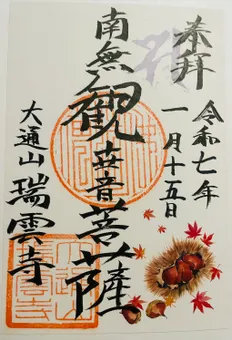 奉拝
令和七年
一月十五日
南無観世音菩薩
大通山 瑞雲寺